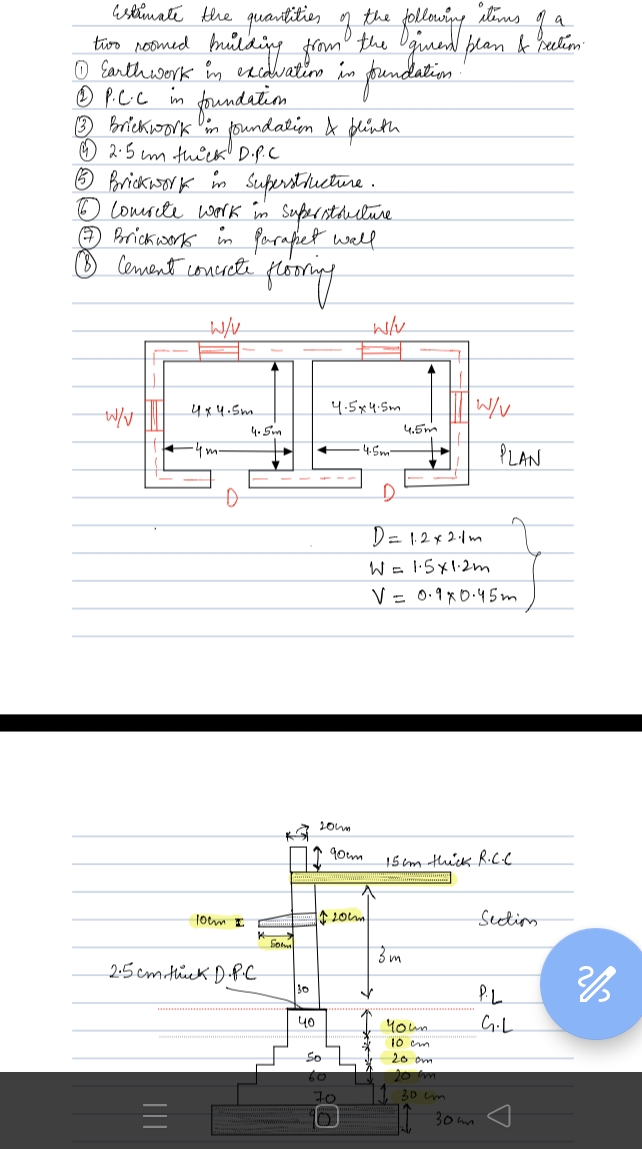 Estimate the quantities of the following items of a
two roomed building from the given plan & section.
① Earthwork in excavation in foundation.
② P.C.C in foundation
③ Brickwork in foundation & plinth
④ 2.5 cm thick D.P.C
⑤ Brickwork in Superstructure.
⑥ Concrete work in Superstructure
⑦ Brickwork in Parapet wall
⑧ Cement concrete flooring
W/V W/V
W/V 4 x 4.5m 4.5 x 4.5m W/V
4.5m 4.5m
4 m 4.5m PLAN
D D
D = 1.2 x 2.1m
W = 1.5 x 1.2m
V = 0.9 x 0.45m
20cm
90cm 15 cm thick R.C.C
10cm 20cm Section
50cm
3 m
2.5 cm thick D.P.C
30 P.L
40 40cm G.L
10 cm
50 20 cm
60 20 cm
70 30 cm
90 30 cm